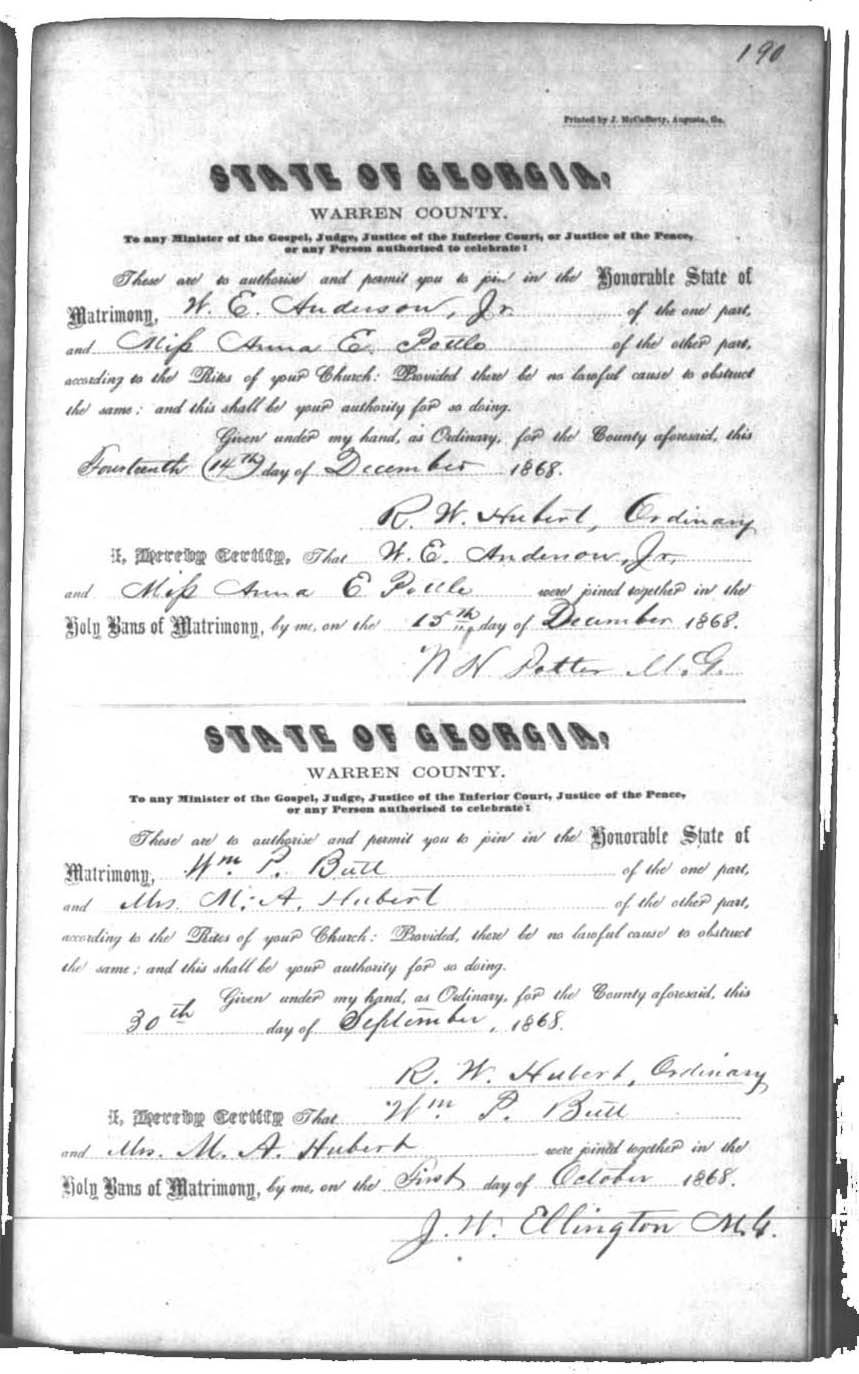 190
Printed by J. McCafferty, Augusta, Ga.
STATE OF GEORGIA,
WARREN COUNTY.
To any Minister of the Gospel, Judge, Justice of the Inferior Court, or Justice of the Peace,
or any Person authorised to celebrate:
These are to authorise and permit you to join in the Honorable State of
Matrimony, W. E. Anderson, Jr. of the one part,
and Miss Anna E. Pottle of the other part,
according to the Rites of your Church: Provided there be no lawful cause to obstruct
the same; and this shall be your authority for so doing.
Given under my hand, as Ordinary, for the County aforesaid, this
Fourteenth (14th) day of December 1868.
R. W. Hubert, Ordinary
I, Hereby Certify, That W. E. Anderson, Jr.
and Miss Anna E Pottle were joined together in the
Holy Bans of Matrimony, by me, on the 15th day of December 1868.
H Potter M.G.
STATE OF GEORGIA,
WARREN COUNTY.
To any Minister of the Gospel, Judge, Justice of the Inferior Court, Justice of the Peace,
or any Person authorised to celebrate:
These are to authorise and permit you to join in the Honorable State of
Matrimony, Wm P. Butt of the one part,
and Mrs. M. A. Hubert of the other part,
according to the Rites of your Church: Provided, there be no lawful cause to obstruct
the same; and this shall be your authority for so doing.
Given under my hand, as Ordinary, for the County aforesaid, this
30th day of September, 1868.
R. W. Hubert, Ordinary
I, Hereby Certify That Wm P. Butt
and Mrs. M. A. Hubert were joined together in the
Holy Bans of Matrimony, by me, on the First day of October 1868.
J. W. Ellington M.G.